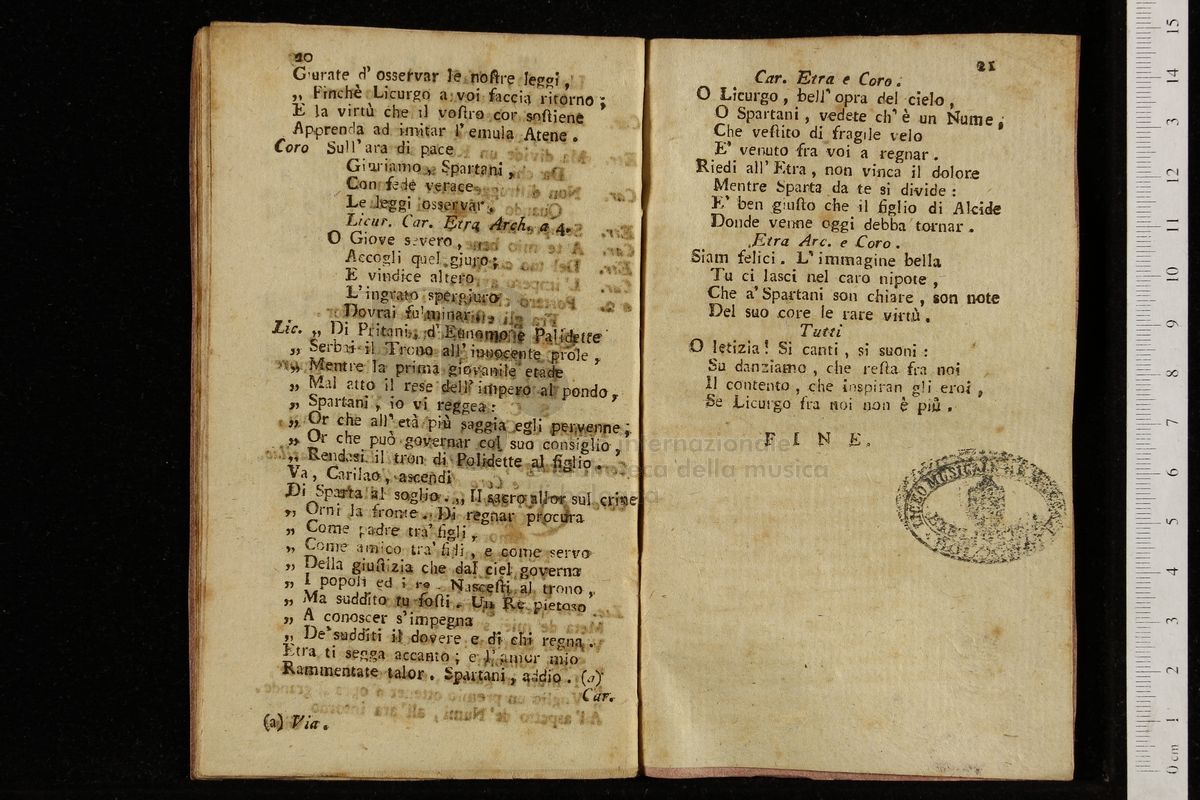 20
Giurate d' osservar le nostre leggi,
„ Finchè Licurgo a voi faccia ritorno;
E la virtù che il vostro cor sostiene
Apprenda ad imitar l' emula Atene.
Coro Sull' ara di pace
Giuriamo, Spartani,
Con fede verace
Le leggi osservar.
Licur. Car. Etra Arch. a 4.
O Giove severo,
Accogli quel giuro;
E vindice altero
L' ingrato spergiuro
Dovrai fulminar.
Lic. „ Di Pritani, d' Eunomo e Palidette
„ Serbai il Trono all' innocente prole,
„ Mentre la prima giovanile etade
„ Mal atto il rese dell' impero al pondo,
„ Spartani, io vi reggea:
„ Or che all' età più saggia egli pervenne;
„ Or che può governar col suo consiglio,
„ Rendasi il tron di Polidette al figlio.
Va, Carilao, ascendi
Di Sparta al soglio. „ Il sacro allor sul crine
„ Orni la fronte. Di regnar procura
„ Come padre tra' figli,
„ Come amico tra' fidi, e come servo
„ Della giustizia che dal ciel governa
„ I popoli ed i re. Nascesti al trono,
„ Ma suddito tu fosti. Un Re pietoso
„ A conoscer s' impegna
„ De' sudditi il dovere e di chi regna.
Etra ti segga accanto; e l' amor mio
Rammentate talor. Spartani, addio. (a)
Car.
(a) Via.
21
Car. Etra e Coro.
O Licurgo, bell' opra del cielo,
O Spartani, vedete ch' è un Nume,
Che vestito di fragile velo
E' venuto fra voi a regnar.
Riedi all' Etra, non vinca il dolore
Mentre Sparta da te si divide:
E' ben giusto che il figlio di Alcide
Donde venne oggi debba tornar.
Etra Arc. e Coro.
Siam felici. L' immagine bella
Tu ci lasci nel caro nipote,
Che a' Spartani son chiare, son note
Del suo core le rare virtù.
Tutti
O letizia! Si canti, si suoni:
Su danziamo, che resta fra noi
Il contento, che inspiran gli eroi,
Se Licurgo fra noi non è più.
FINE.
internazionale
della musica
LICEO MUSICALE
0 cm 1 2 3 4 5 6 7 8 9 10 11 12 13 14 15